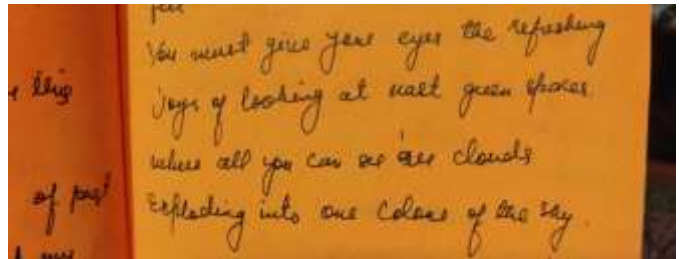 n this
of past
You must give your eyes the refreshing
joys of looking at vast green spaces.
where all you can see are clouds
exploding into one colour of the sky.